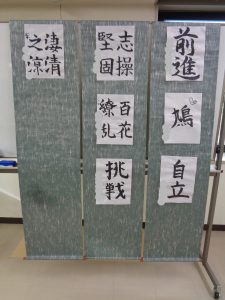 前進
鳩
自立
志操
堅固
百花
繚乱
挑戦
凄清
之涼